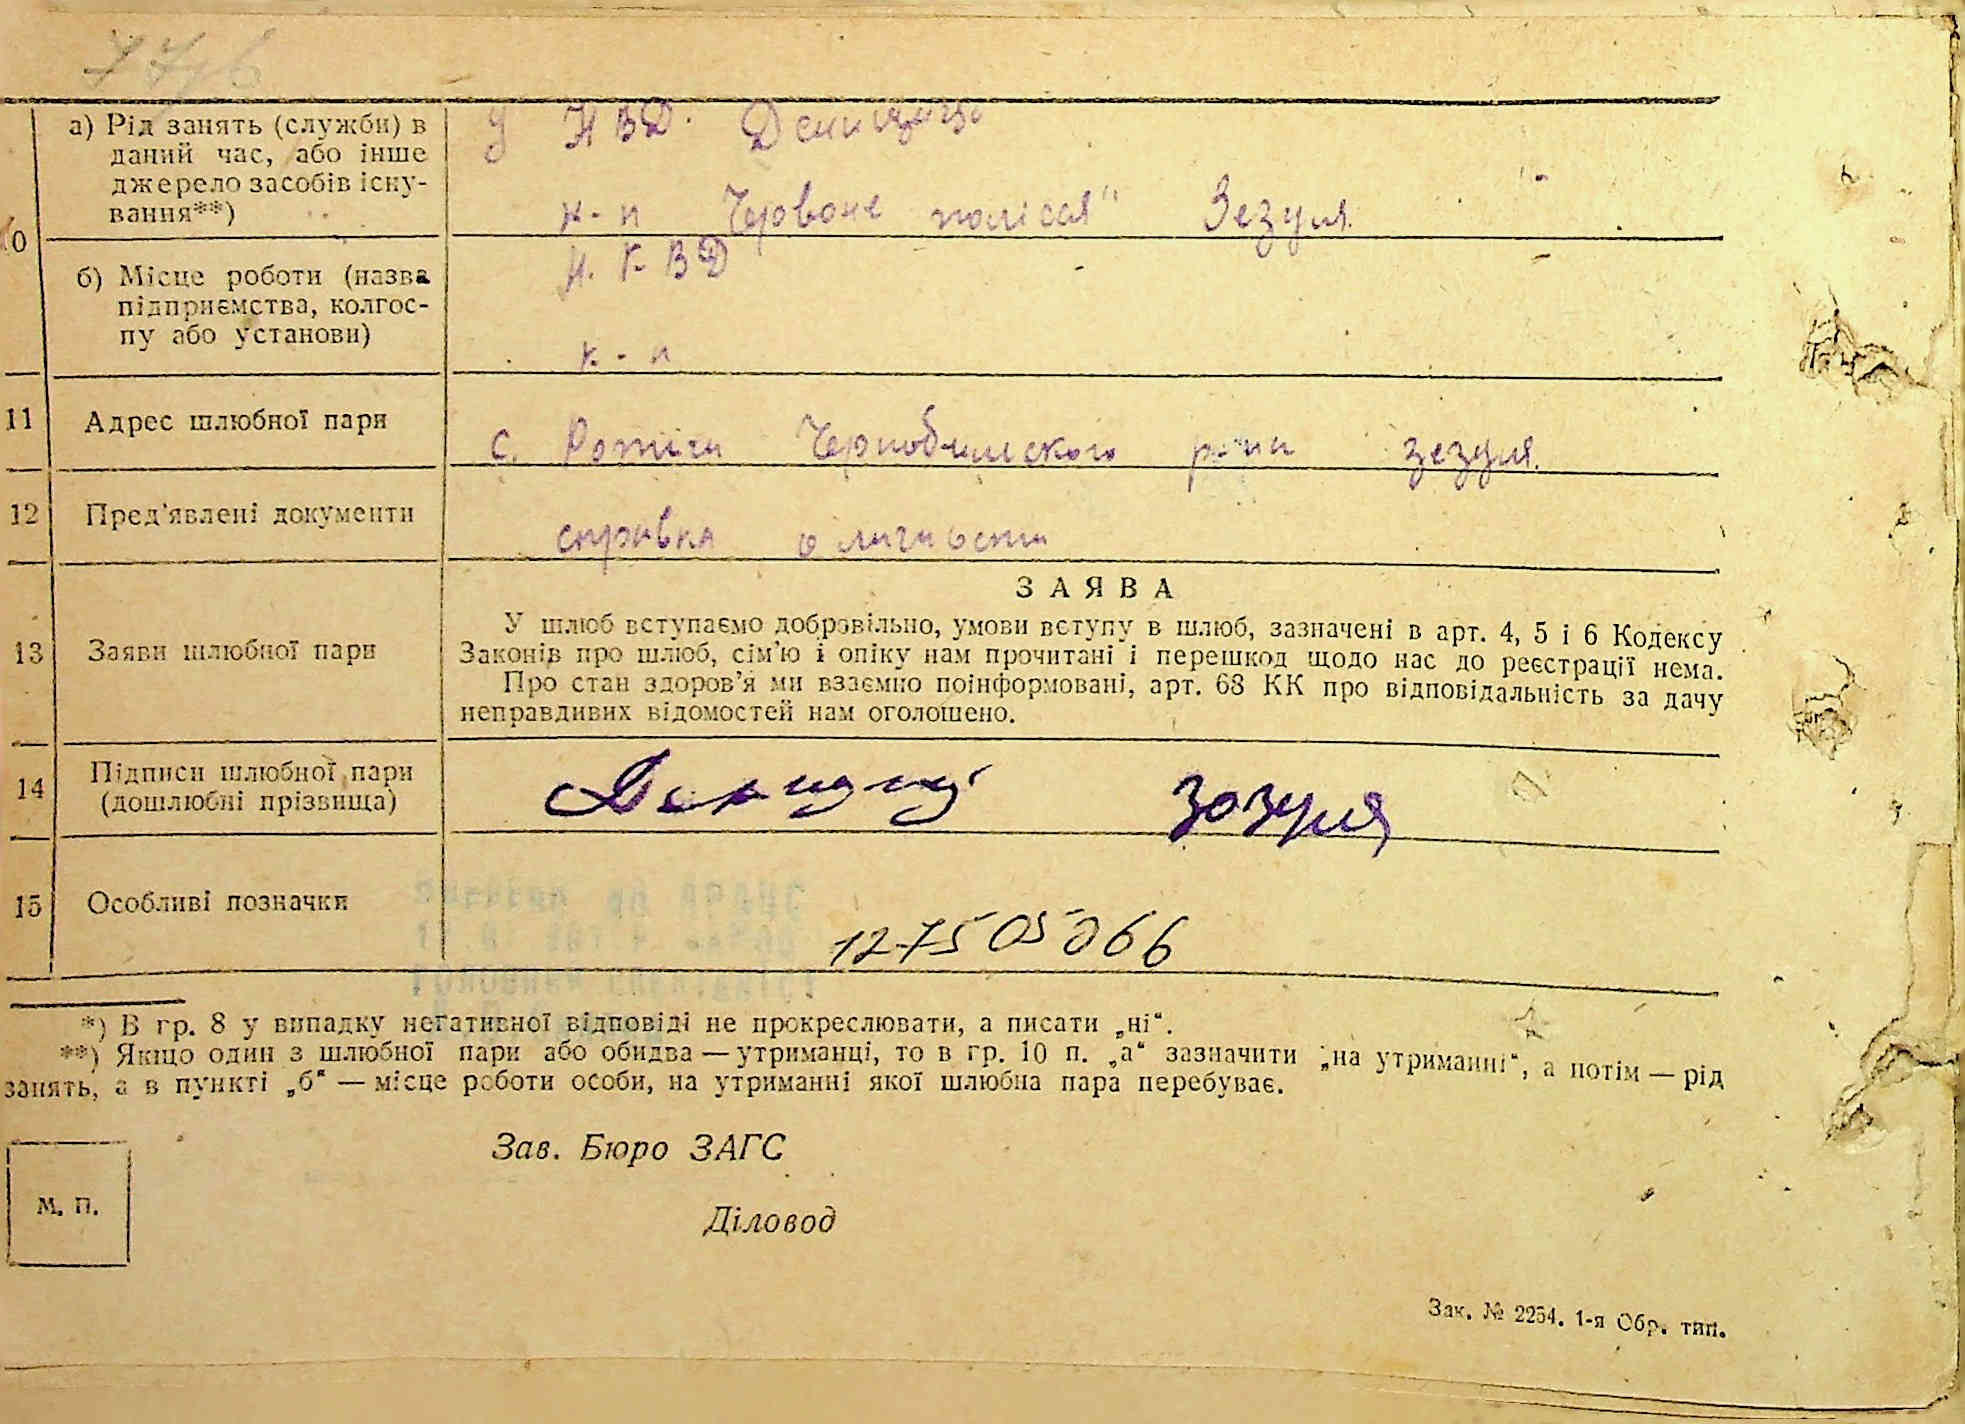 а) Рід занять (служби) в
даний час, або інше
джерело засобів існу-
вання**)
у НВД.
к-п Червоне полісся" Зезуля.
б) Місце роботи (назва
підприємства, колгос-
пу або установи)
Н. К. В Д
к-п
11 Адрес шлюбної пари
с. Ротичи Чернобильского Зезуля.
12 Пред'явлені документи
справка о личности
13 Заяви шлюбної пари
ЗАЯВА
У шлюб вступаємо добровільно, умови вступу в шлюб, зазначені в арт. 4, 5 і 6 Кодексу
Законів про шлюб, сім'ю і опіку нам прочитані і перешкод щодо нас до реєстрації нема.
Про стан здоров'я ми взаємно поінформовані, арт. 68 КК про відповідальність за дачу
неправдивих відомостей нам оголошено.
14 Підписи шлюбної пари
(дошлюбні прізвища)
Зозуля
15 Особливі позначки
127505066
*) В гр. 8 у випадку негативної відповіді не прокреслювати, а писати „ні“.
**) Якщо один з шлюбної пари або обидва — утриманці, то в гр. 10 п. „а“ зазначити „на утриманні“, а потім — рід
занять, а в пункті „б“ — місце роботи особи, на утриманні якої шлюбна пара перебуває.
Зав. Бюро ЗАГС
М. П.
Діловод
Зак. № 2254. 1-я Обр. тип.